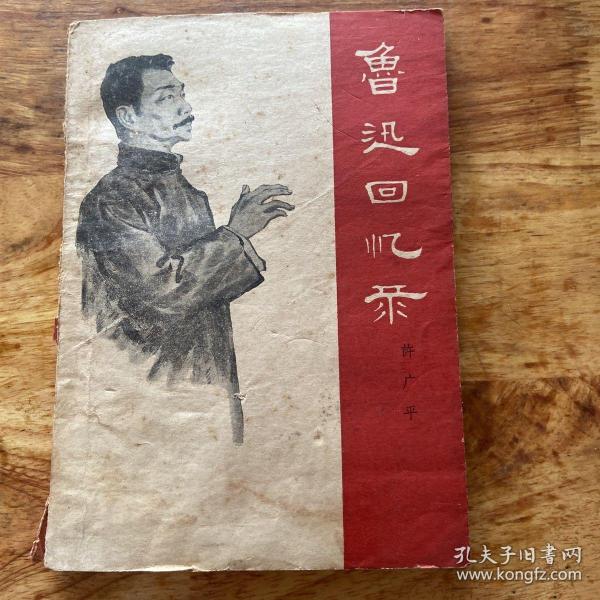 魯迅回忆录
许广平
孔夫子旧書网
www.kongfz.com